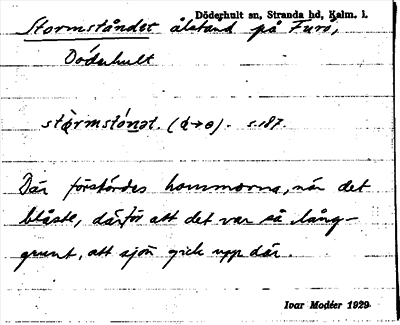 Döderhult sn, Stranda hd, Kalm. l.
Stormståndet ålstand på Furö,
Döderhult
s. 187.
Där förstördes hommorna, när det
blåste, därför att det var så lång-
grunt, att sjön gick upp där.
Ivar Modéer 1929